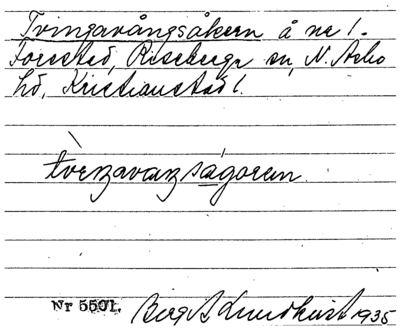 Tvingavångsåkern å nr 1.
Forested, Riseberga sn, N. Åsbo
hd, Kristianstad l.
tvenzavanzsågoren
Nr 5501. Birgit Lundkvist 1935